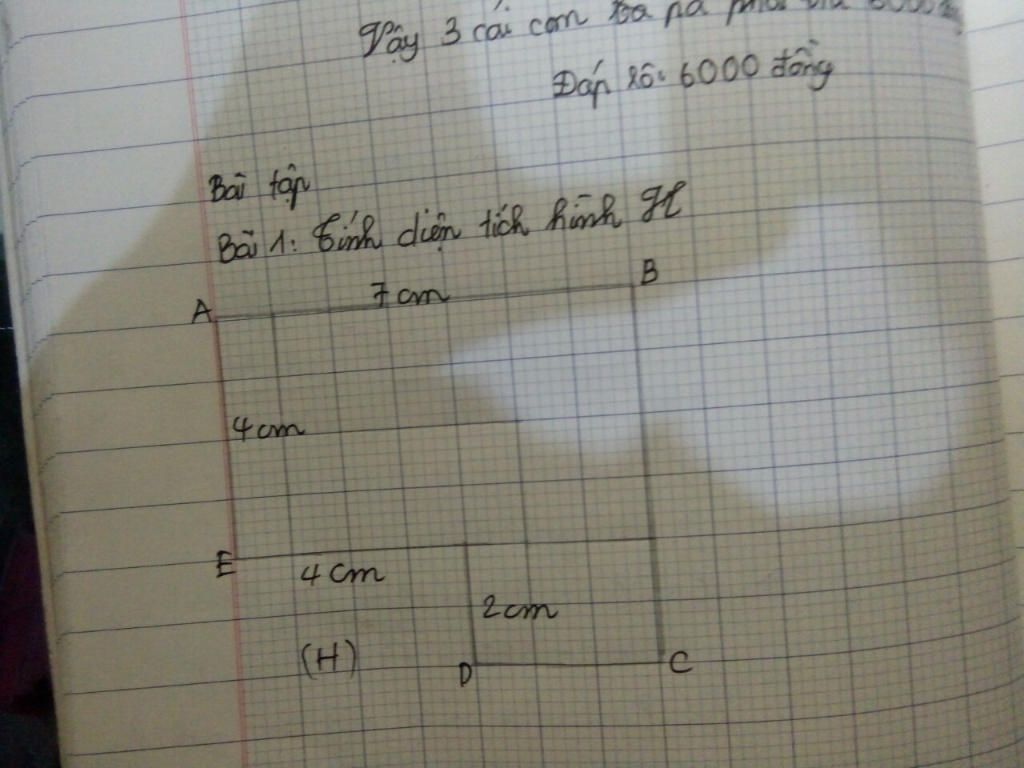 Vậy 3 cái com
Đáp số: 6000 đồng
Bài tập
Bài 1: Tính diện tích hình H
A 7cm B
4cm
E
4cm
2cm
(H)
D C